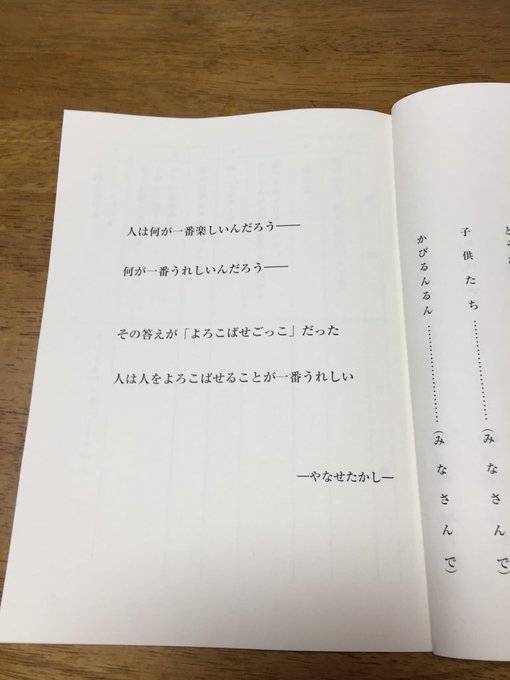 人は何が一番楽しいんだろう――
何が一番うれしいんだろう――
その答えが「よろこばせごっこ」だった
人は人をよろこばせることが一番うれしい
―やなせたかし―
子供たち……………………(みなさんで)
かびるんるん……………………(みなさんで)